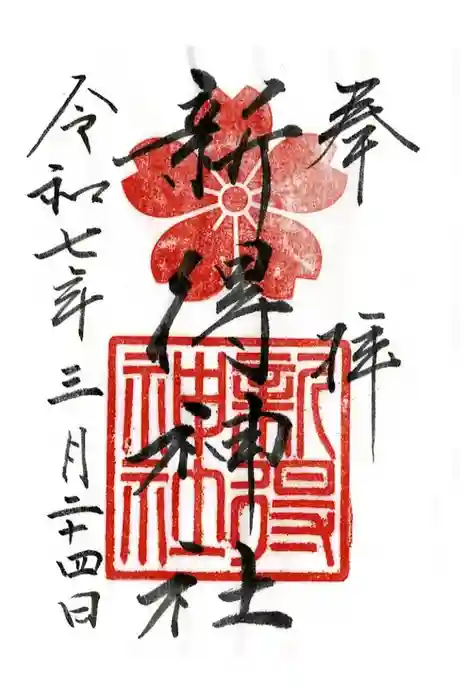 奉拝
新得神社
新得
神社
令和七年三月二十四日